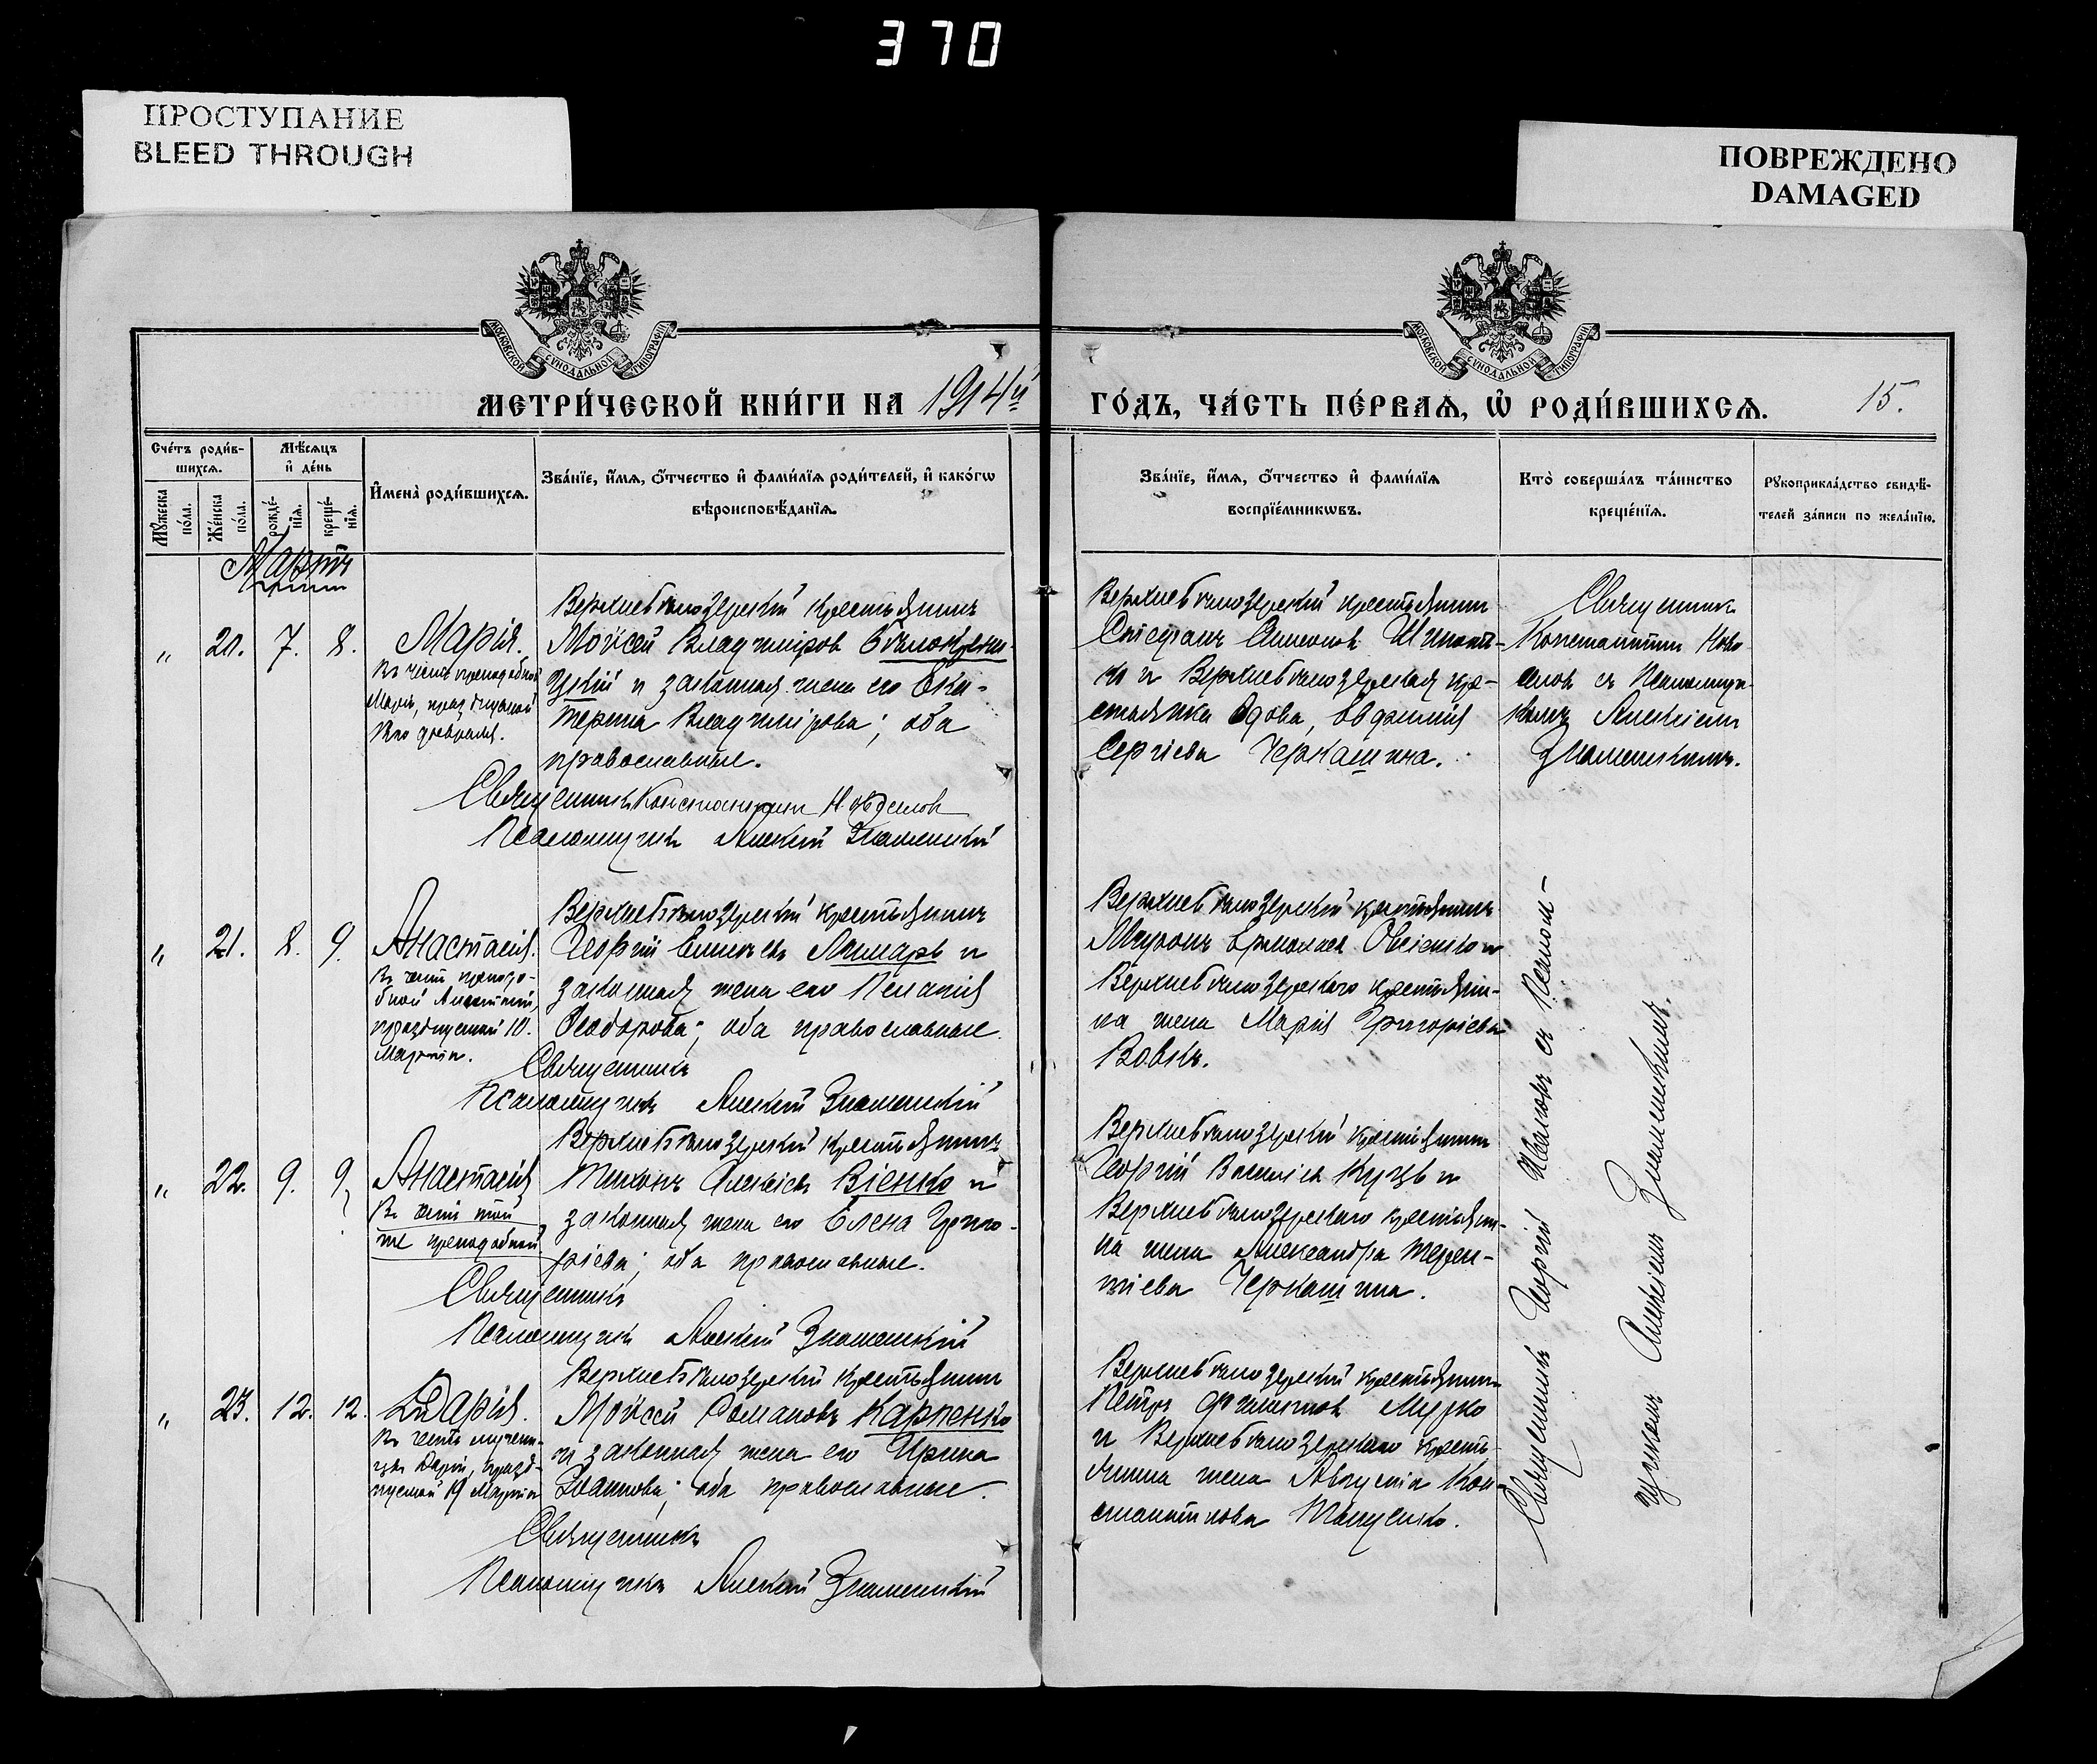 370
ПРОСТУПАНИЕ
BLEED THROUGH
ПОВРЕЖДЕНО
DAMAGED
МОСКОВСКОЙ СѴНОДАЛЬНОЙ ТИПОГРАФІИ
МОСКОВСКОЙ СѴНОДАЛЬНОЙ ТИПОГРАФІИ
МЕТРИ́ЧЕСКОЙ КНИ́ГИ НА 1914й
ГО́ДЪ, ЧА́СТЬ ПЕ́РВАѦ, Ѡ҆ РОДИ́ВШИХСѦ. 15.
Сче́тъ роди́в-
шихсѧ.
Мѣ́сѧцъ
и҆ де́нь
Мꙋ́жеска
по́ла.
Же́нска
по́ла.
рожде́-
нїѧ.
креще́-
нїѧ.
И҆мена̀ роди́вшихсѧ.
Зва́нїе, и҆́мѧ, ѻ҆́тчество и҆ фами́лїѧ роди́телей, и҆ како́гѡ
вѣроисповѣ́данїѧ.
Зва́нїе, и҆́мѧ, ѻ҆́тчество и҆ фами́лїѧ
воспрїе́мникѡвъ.
Кто̀ соверша́лъ та́инство
креще́нїѧ.
Рꙋкоприкла́дство свидѣ́-
телей за́писи по жела́нїю.
Мартъ
" 20. 7. 8. Марія.
Въ честь преподобной
Маріи, празднуемой
февраля.
Верхнебѣлозерскій крестьянинъ
Моѵсей Владиміров Бѣлокрени-
цкій и законная жена его Ека-
терина Владимірова; оба
православные.
Священникъ Константин Новоселов
Псаломщикъ Алексій Знаменскій
Верхнебѣлозерскій крестьянин
Стефанъ Симеонов
и Верхнебѣлозерская кре-
стьянка вдова, Евфимія
Сергіева Черкашина.
Священник
Константин Ново-
селов съ Псаломщи-
комъ Алексіем
Знаменскимъ.
" 21. 8. 9. Анастасія.
Въ честь преподо-
бной Анастасіи,
празднуемой 10.
Марта.
Верхнебѣлозерскій крестьянинъ
Георгій Лимарь и
законная жена его Пелагія
Ѳеодорова; оба православные.
Священникъ
Псаломщикъ Алексій Знаменскій
Верхнебѣлозерскій крестьянинъ
Миронъ Ермолаев Овсіенко и
Верхнебѣлозерскаго крестьяни-
на жена Марія Григоріева
Вовкъ.
" 22. 9. 9. Анастасія
Въ честь той
же преподобной
Верхнебѣлозерскій крестьянинъ
Тихонъ Алексіев Віенко и
законная жена его Елена Григо-
ріева; оба православные.
Священникъ
Псаломщикъ Алексій Знаменскій
Верхнебѣлозерскій крестьянин
Георгій Василіев Куцъ и
Верхнебѣлозерскаго крестьяни-
на жена Александра Терен-
тіева Черкашина.
" 23. 12. 12. Дарія.
Въ честь мучени-
цы Даріи, празд-
нуемой 19 Марта
Верхнебѣлозерскій крестьянин
Моѵсей Романовъ Карпенко
и законная жена его Ирина
Іоаннова; оба православные.
Священникъ
Псаломщикъ Алексій Знаменскій
Верхнебѣлозерскій крестьянин
Петръ Филиппов Мурко
и Верхнебѣлозерскаго кресть-
янина жена Августа Кон-
стантинова Тащенко.
Священникъ Георгій Ивановъ съ Псалом-
щикомъ Алексіемъ Знаменскимъ.